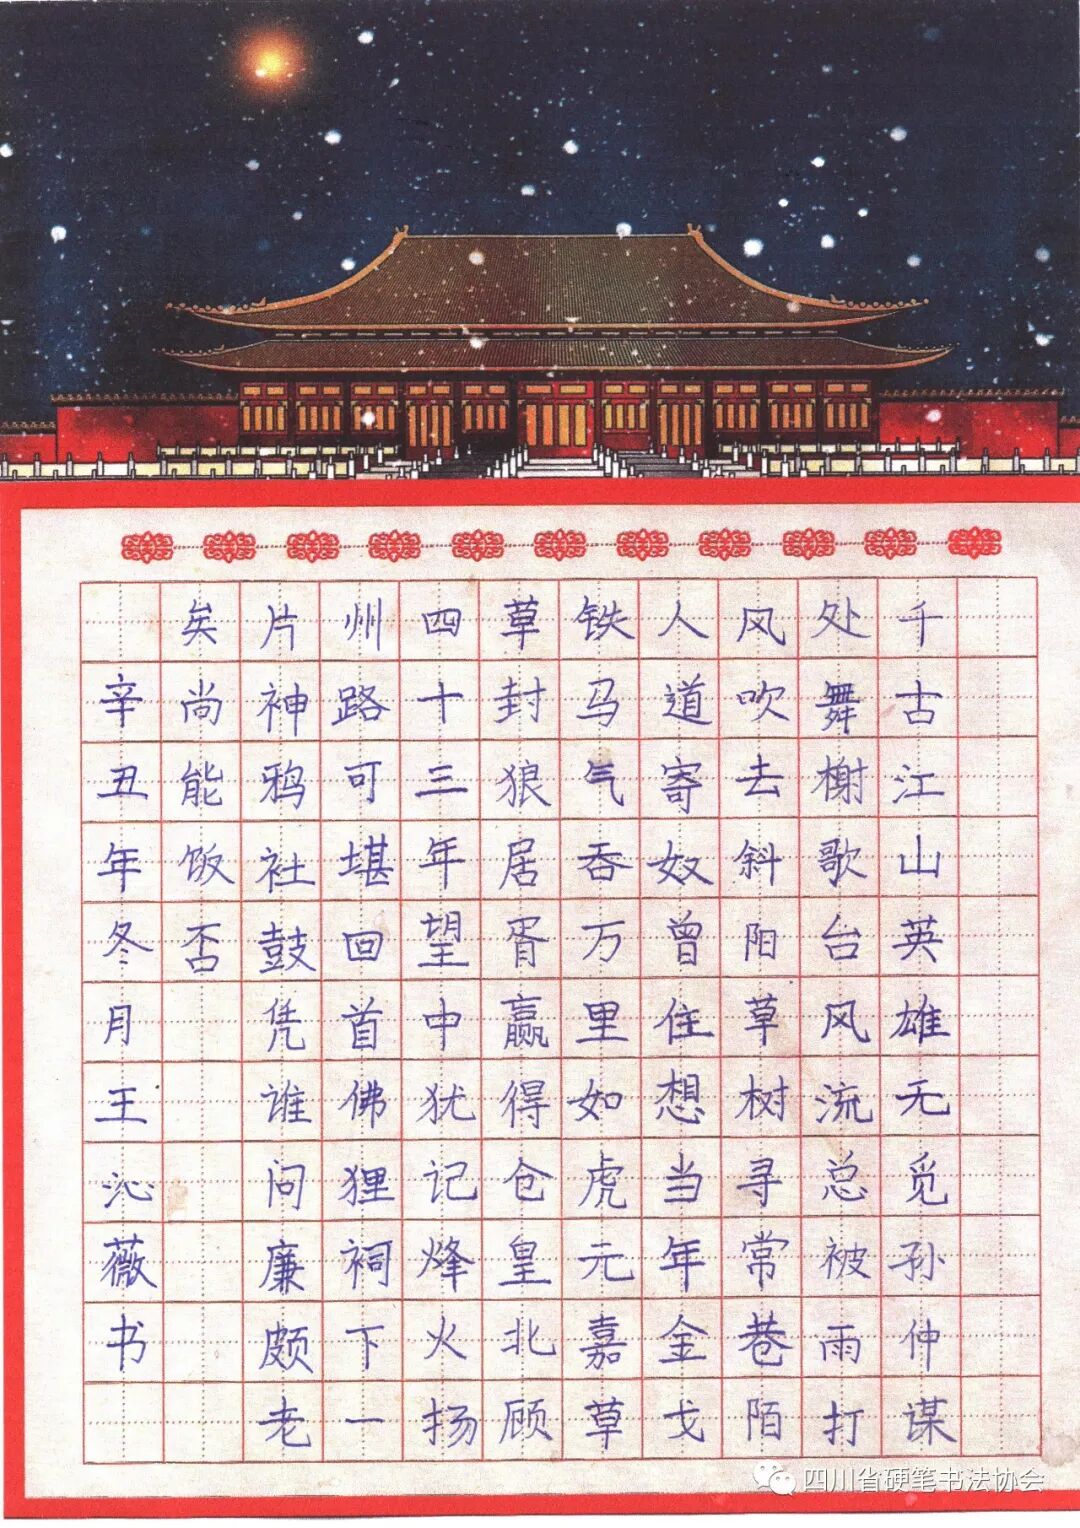 千古江山英雄无觅孙仲谋
处舞榭歌台风流总被雨打
风吹去斜阳草树寻常巷陌
人道寄奴曾住想当年金戈
铁马气吞万里如虎元嘉草
草封狼居胥赢得仓皇北顾
四十三年望中犹记烽火扬
州路可堪回首佛狸祠下一
片神鸦社鼓凭谁问廉颇老
矣尚能饭否
辛丑年冬月王沁薇书
四川省硬笔书法协会